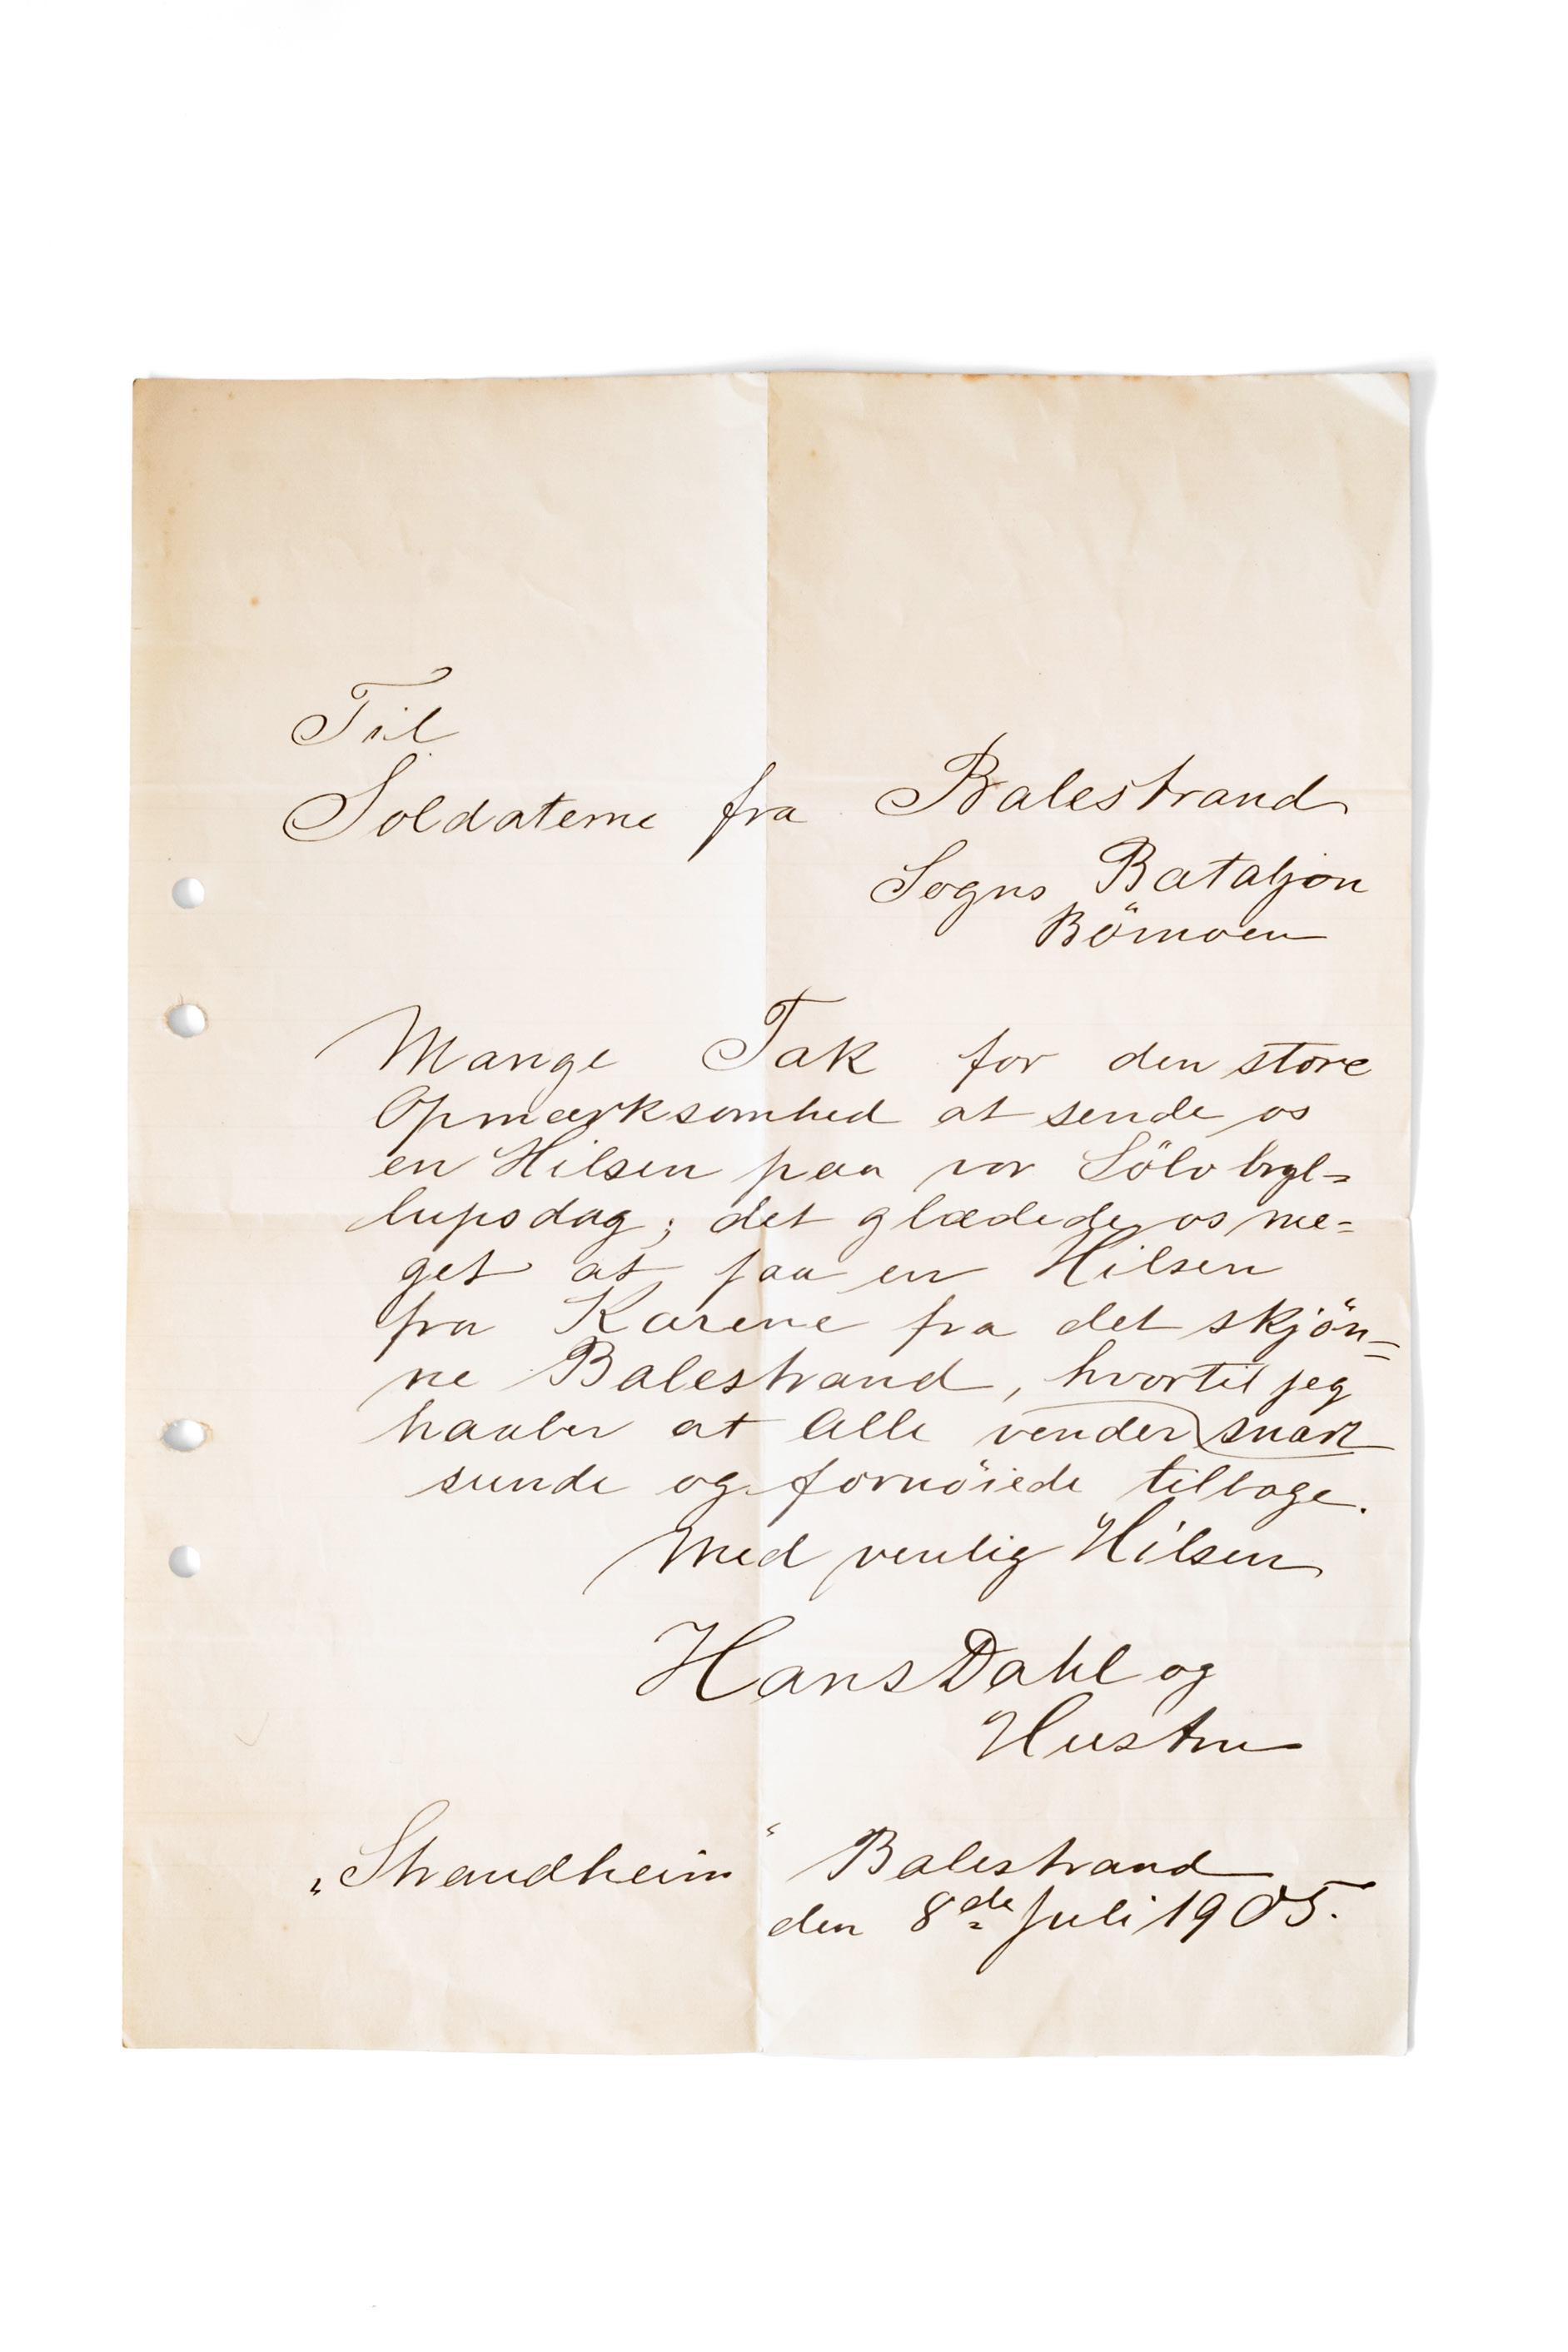 Til
Soldaterne fra Balestrand
Sogns Bataljon
Bömoen
Mange Tak for den store
Opmærksomhed at sende os
en Hilsen paa vor Sölvbryl=
lupsdag; det glædede os me=
get at faa en Hilsen
fra Karene fra det skjön=
ne Balestrand, hvortil jeg
haaber at Alle vender snart
sunde og fornöiede tilbage.
Med venlig Hilsen
Hans Dahl og
Hustru
„Strandheim“ Balestrand
den 8de Juli 1905.